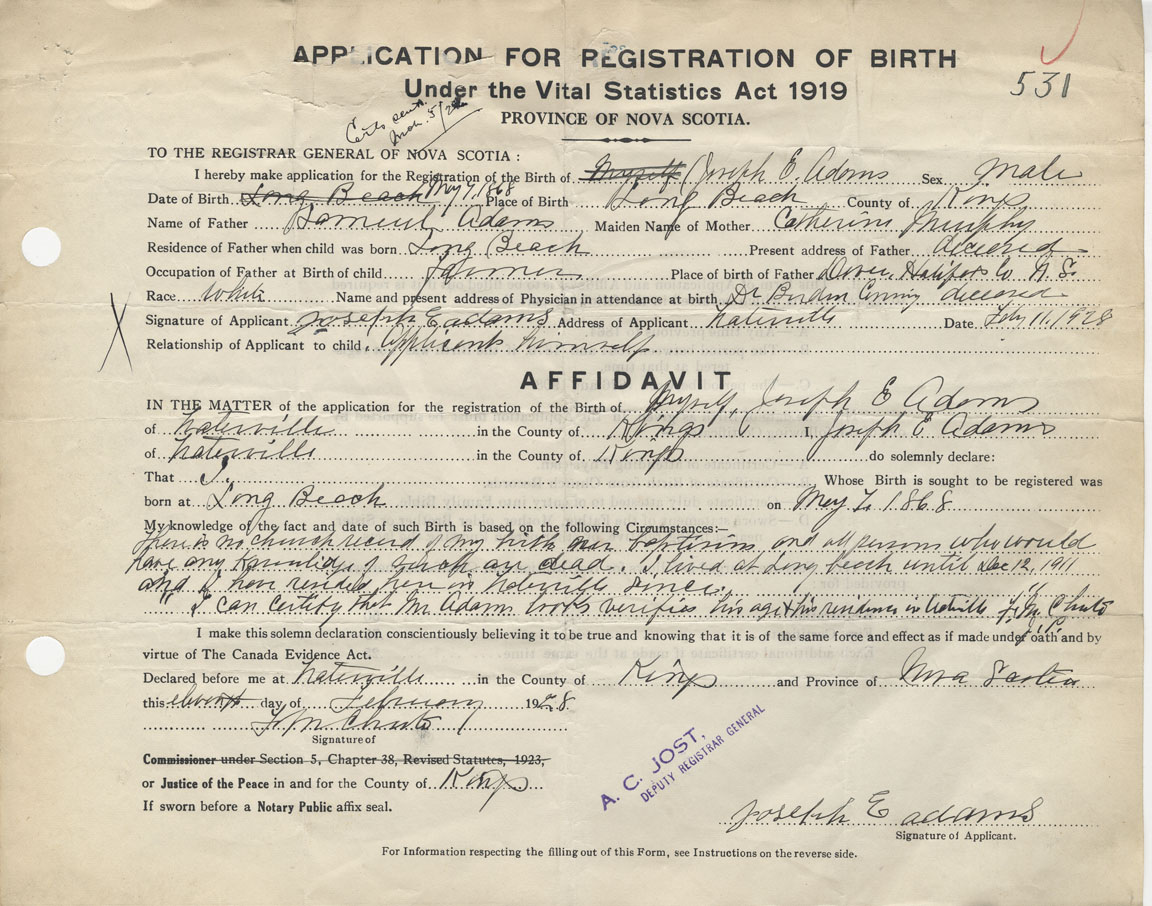 APPLICATION FOR REGISTRATION OF BIRTH
531
Under the Vital Statistics Act 1919
Certs sent. Mch. 5/28
PROVINCE OF NOVA SCOTIA.
TO THE REGISTRAR GENERAL OF NOVA SCOTIA :
I hereby make application for the Registration of the Birth of Myself (Joseph E. Adams Sex male
Date of Birth Long Beach May 7, 1868 Place of Birth Long Beach County of Kings
Name of Father Samuel Adams Maiden Name of Mother Catherine Murphy
Residence of Father when child was born Long Beach Present address of Father deceased
Occupation of Father at Birth of child farmer Place of birth of Father Dover, Halifax Co N. S.
Race White Name and present address of Physician in attendance at birth Dr Canning deceased
Signature of Applicant Joseph E adams Address of Applicant Date Feby 11, 1928
Relationship of Applicant to child. Applicant himself.
AFFIDAVIT
IN THE MATTER of the application for the registration of the Birth of Myself, Joseph E Adams
of in the County of Kings I, Joseph E Adams
of in the County of Kings do solemnly declare:
That I, Whose Birth is sought to be registered was
born at Long Beach on May 7, 1868
My knowledge of the fact and date of such Birth is based on the following Circumstances:—
There is no church record of my birth nor baptism, and all persons who would
have any knowledge of such are dead. I lived at Long beach until Dec 12, 1911
and I have resided here in since.
I can certify that Mr. Adams looks verifies his age & his residence in
I make this solemn declaration conscientiously believing it to be true and knowing that it is of the same force and effect as if made under oath and by
virtue of The Canada Evidence Act.
Declared before me at in the County of Kings and Province of Nova Scotia
this eleventh day of February 1928
Signature of
Commissioner under Section 5, Chapter 38, Revised Statutes, 1923,
or Justice of the Peace in and for the County of Kings
If sworn before a Notary Public affix seal.
A. C. JOST,
DEPUTY REGISTRAR GENERAL
Joseph E adams
Signature of Applicant.
For Information respecting the filling out of this Form, see Instructions on the reverse side.